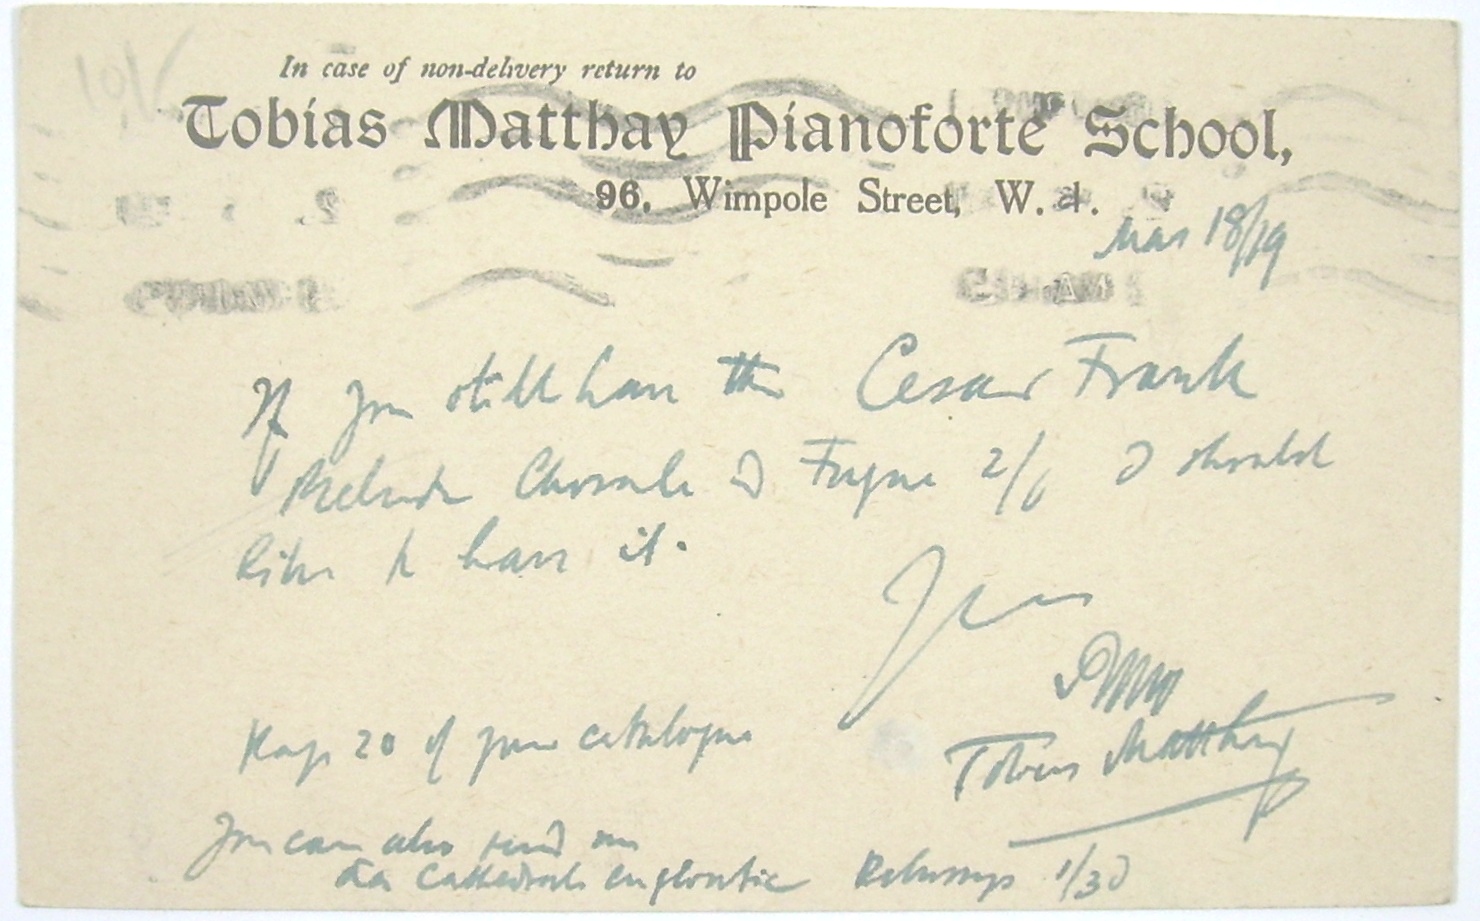 In case of non-delivery return to
Tobias Matthay Pianoforte School,
96, Wimpole Street, W. 1.
Mar 18/19
If you still have the Cesar Frank
Prelude Chorale & Fugue 2/6 I should
like to have it.
Yours
Tobias Matthay
Page 20 of your catalogue
You can also send me
La Cathedrale engloutie 1/3d